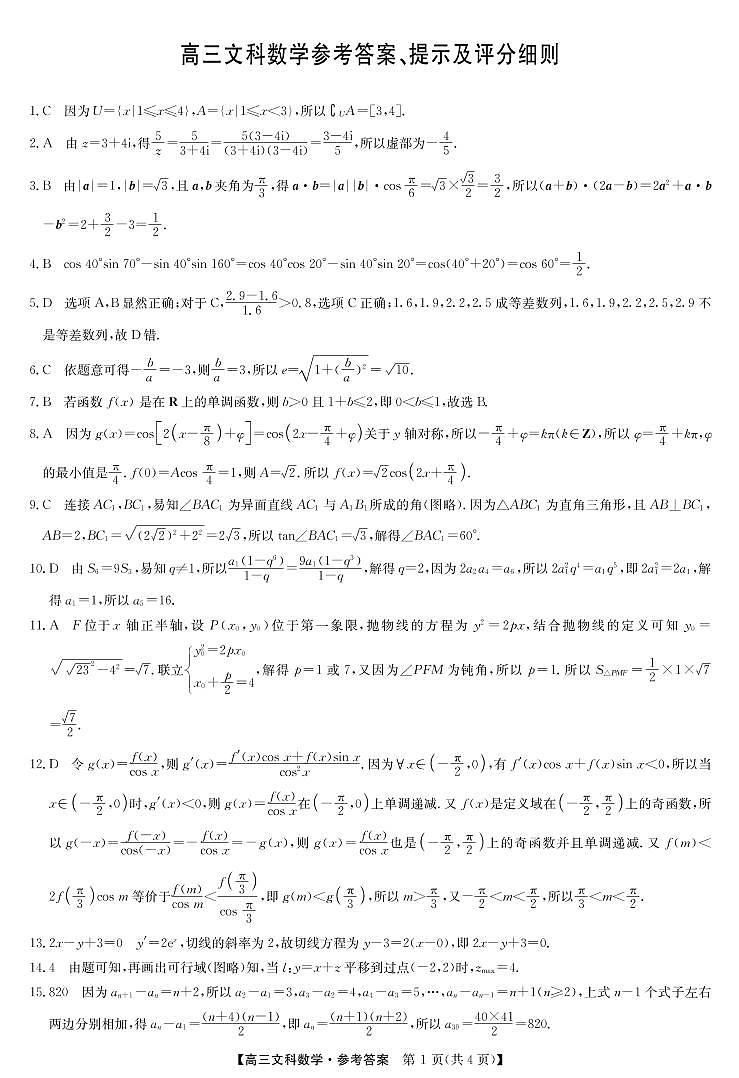 高三文科数学参考答案、提示及评分细则
1. C 因为U={x|1⩽x⩽4},A={x|1⩽x<3},所以∁UA=[3,4].
2. A 由 z=3+4i,得5/z=5/(3+4i)=5(3-4i)/((3+4i)(3-4i))=(3-4i)/5,所以虚部为-4/5.
3. B 由|a|=1,|b|=√3,且 a,b 夹角为π/3,得 a·b=|a||b|·cos π/6=√3×√3/2=3/2,所以(a+b)·(2a-b)=2a²+a·b
-b²=2+3/2-3=1/2.
4. B cos 40°sin 70°-sin 40°sin 160°=cos 40°cos 20°-sin 40°sin 20°=cos(40°+20°)=cos 60°=1/2.
5. D 选项 A,B显然正确;对于 C,(2.9-1.6)/1.6>0.8,选项 C 正确;1.6,1.9,2.2,2.5 成等差数列,1.6,1.9,2.2,2.5,2.9 不
是等差数列,故 D 错.
6. C 依题意可得-b/a=-3,则b/a=3,所以 e=√(1+(b/a)²)=√10.
7. B 若函数 f(x) 是在 R 上的单调函数,则 b>0 且 1+b⩽2,即 0<b⩽1,故选 B.
8. A 因为 g(x)=cos[2(x-π/8)+φ]=cos(2x-π/4+φ)关于 y 轴对称,所以-π/4+φ=kπ(k∈Z),所以 φ=π/4+kπ,φ
的最小值是π/4. f(0)=Acos π/4=1,则 A=√2. 所以 f(x)=√2cos(2x+π/4).
9. C 连接 AC₁,BC₁,易知∠BAC₁ 为异面直线 AC₁ 与 A₁B₁所成的角(图略). 因为△ABC₁ 为直角三角形,且 AB⊥BC₁,
AB=2,BC₁=√((2√2)²+2²)=2√3,所以 tan∠BAC₁=√3,解得∠BAC₁=60°.
10. D 由 S₆=9S₃,易知 q≠1,所以a₁(1-q⁶)/(1-q)=9a₁(1-q³)/(1-q),解得 q=2,因为 2a₂a₄=a₆,所以 2a₁²q⁴=a₁q⁵,即 2a₁²=2a₁,解
得 a₁=1,所以 a₅=16.
11. A F 位于 x 轴正半轴,设 P(x₀,y₀)位于第一象限,抛物线的方程为 y²=2px,结合抛物线的定义可知 y₀=
√(√23²-4²)=√7. 联立{y₀²=2px₀, x₀+p/2=4,解得 p=1 或 7,又因为∠PFM 为钝角,所以 p=1. 所以 S△PMF=1/2×1×√7
=√7/2.
12. D 令 g(x)=f(x)/cos x,则 g′(x)=(f′(x)cos x+f(x)sin x)/cos²x. 因为∀x∈(-π/2,0),有 f′(x)cos x+f(x)sin x<0,所以当
x∈(-π/2,0)时,g′(x)<0,则 g(x)=f(x)/cos x在(-π/2,0)上单调递减. 又 f(x)是定义域在(-π/2,π/2)上的奇函数,所
以 g(-x)=f(-x)/cos(-x)=-f(x)/cos x=-g(x),则 g(x)=f(x)/cos x也是(-π/2,π/2)上的奇函数并且单调递减. 又 f(m)<
2f(π/3)cos m 等价于f(m)/cos m<f(π/3)/cos π/3,即 g(m)<g(π/3),所以 m>π/3,又-π/2<m<π/2,所以π/3<m<π/2.
13. 2x-y+3=0 y′=2eˣ,切线的斜率为 2,故切线方程为 y-3=2(x-0),即 2x-y+3=0.
14. 4 由题可知,再画出可行域(图略)知,当 l:y=x+z 平移到过点(-2,2)时,zmax=4.
15. 820 因为 aₙ₊₁-aₙ=n+2,所以 a₂-a₁=3,a₃-a₂=4,a₄-a₃=5,…,aₙ-aₙ₋₁=n+1(n⩾2),上式 n-1 个式子左右
两边分别相加,得 aₙ-a₁=(n+4)(n-1)/2,即 aₙ=(n+1)(n+2)/2,所以 a₃₉=40×41/2=820.
【高三文科数学·参考答案 第 1 页(共 4 页)】